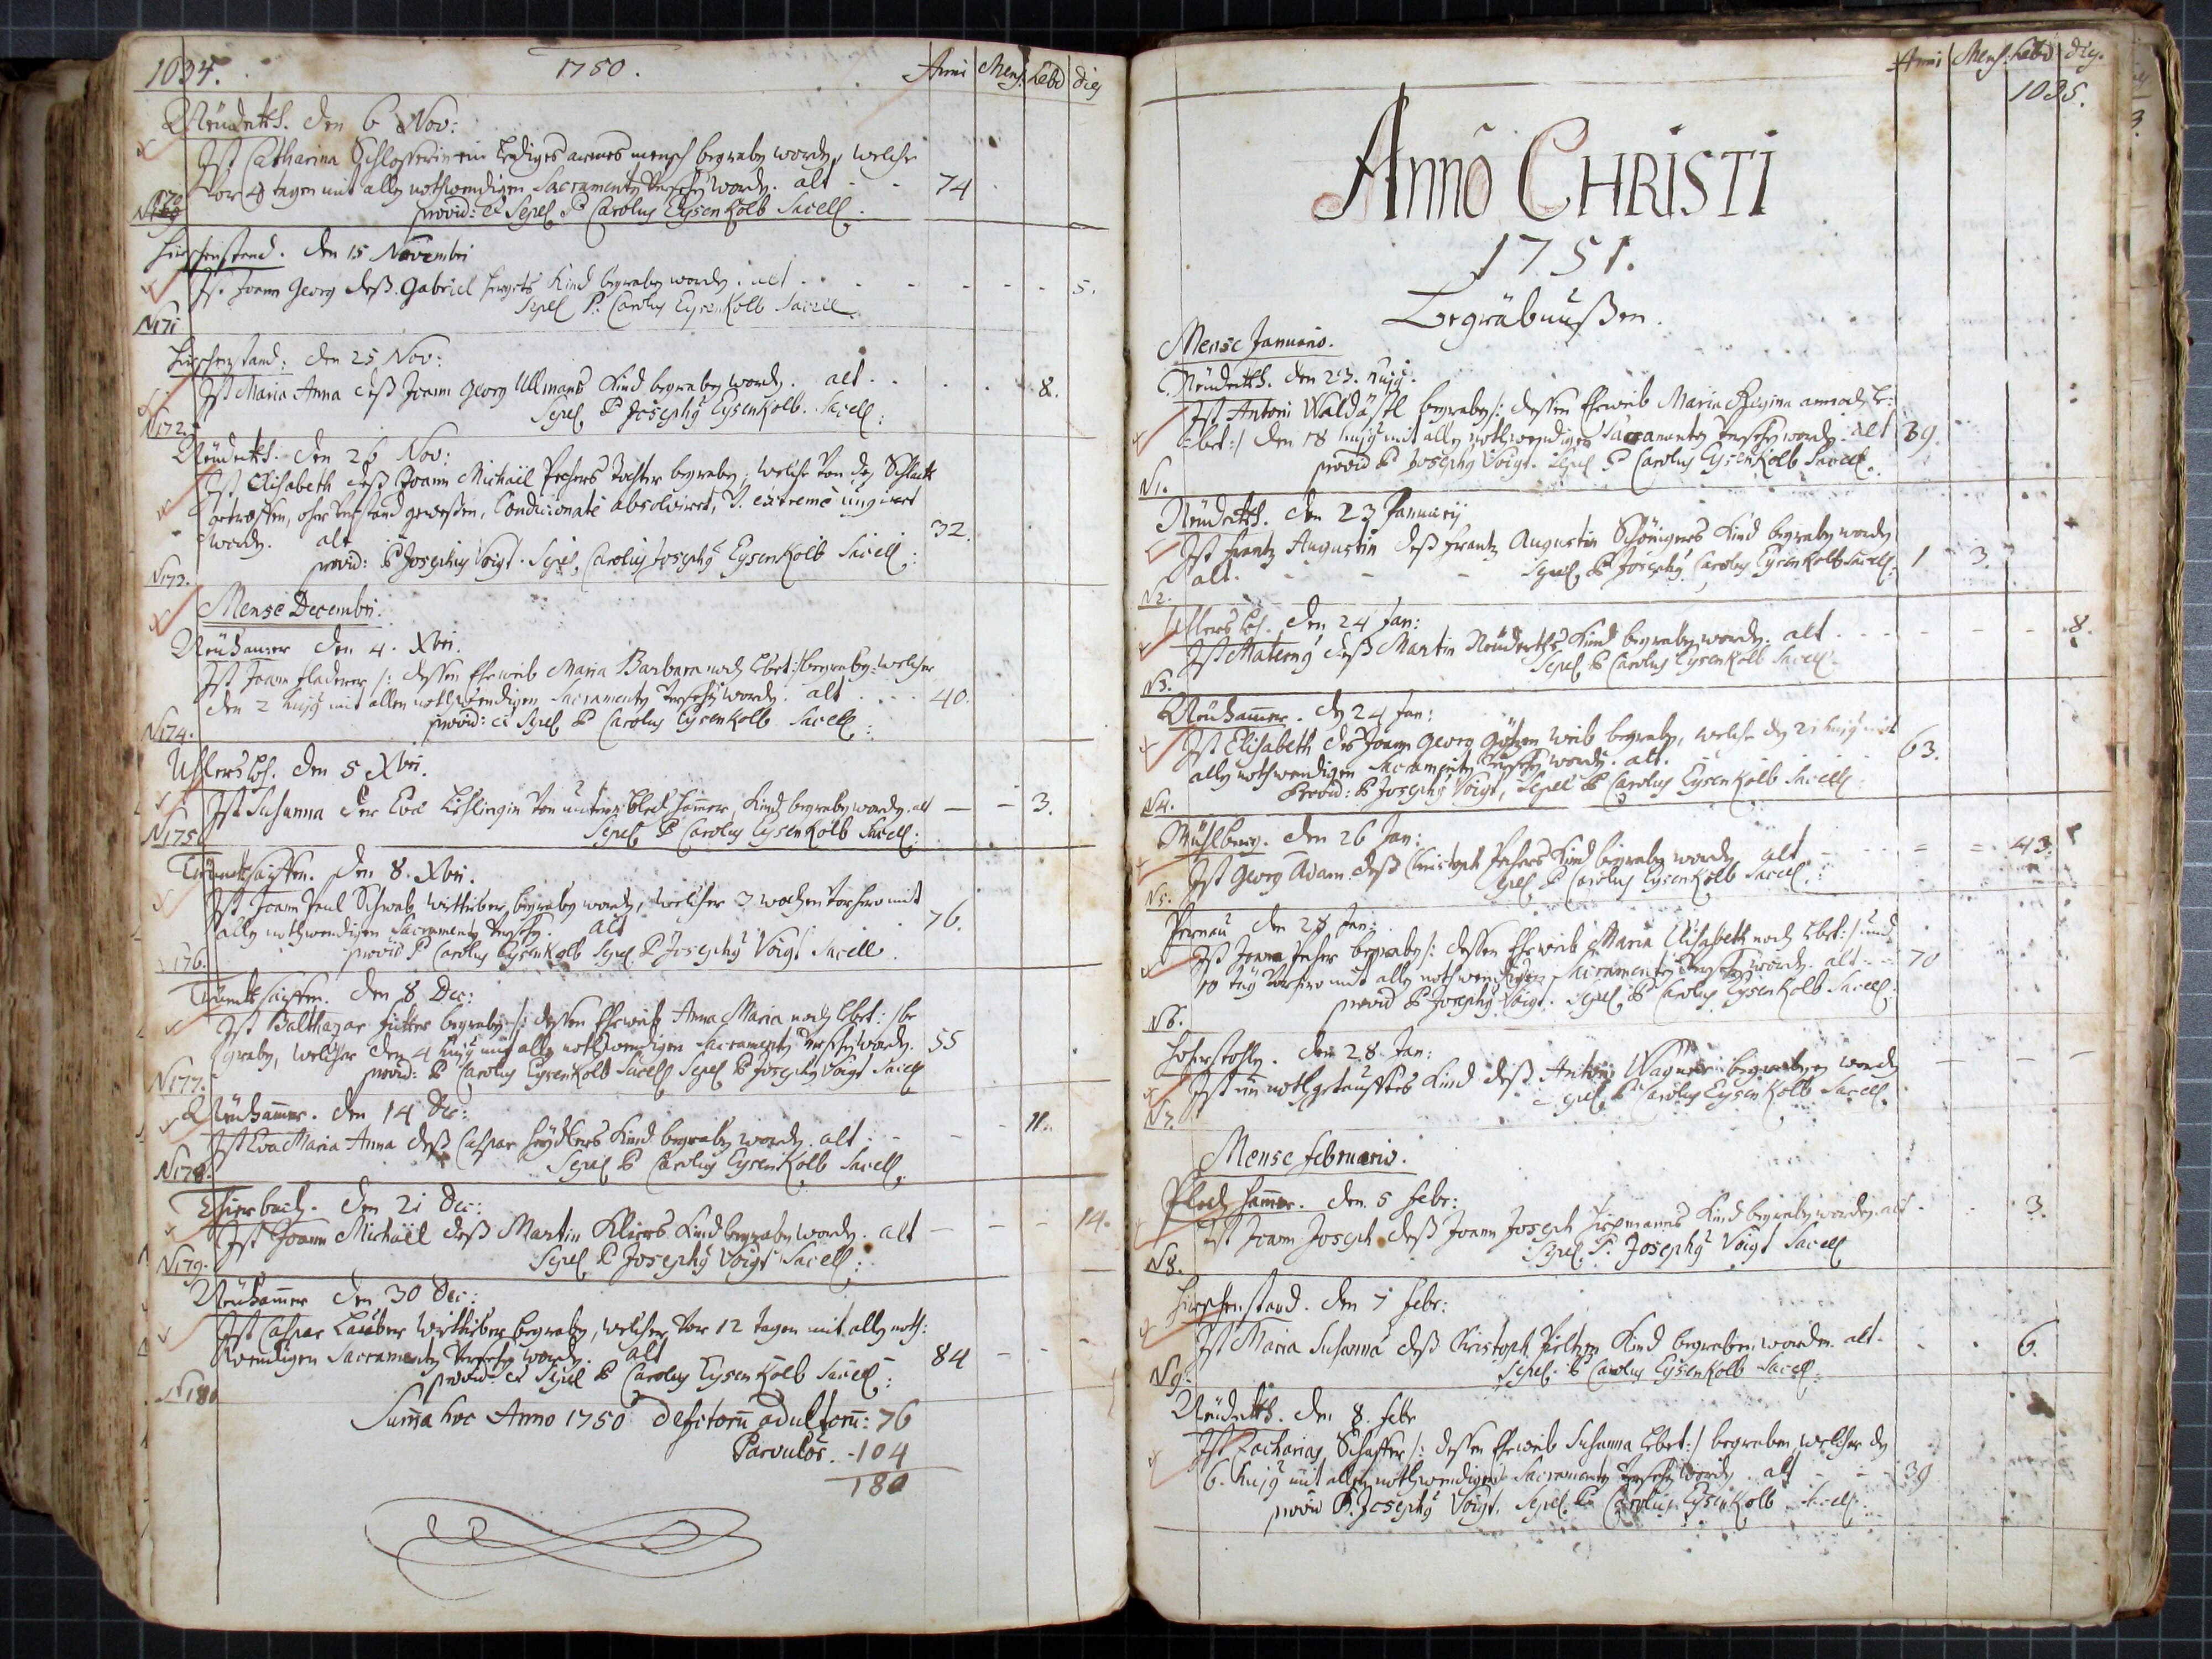 1034. 1750. Anni Mens: Hebd dies
Neudekh. den 6 Nov:
Ist Catharina Schlosserin ein lediges armes mensch begraben worden, welche
vor 8 tagen mit allen nothwendigen Sacramenten versehen worden. alt - - 74
N170 provid: et Sepel. P Carolus Eysenkolb Sacell.
Hirschenstand. den 15 Novembri
Ist Joann Georg deß Gabriel Kind begraben worden. alt 5.
Sepel P. Carolus Eysenkolb Sacell
N171
Hirschenstand: den 25 Nov:
Ist Maria Anna deß Joann Georg Ullmans Kind begraben worden. alt 8.
Sepel P Josephus Eysenkolb. Sacell:
N172.
Neudekh. den 26 Nov:
Ist Elisabeth deß Joann Michael Pechers Tochter begraben, welche von der Schlack
getroffen, ohne verstand gewesen, Condicionate absolvirt, et extreme ungirt
worden. alt 32.
provid: P Josephus Voigt. Sepel. Carolus Josephus Eysenkolb Sacell:
N173.
Mense Decembri.
Neuhamer den 4. Xbri.
Ist Joann Fladerer /: dessen Eheweib Maria Barbara noch lebet:/ begraben, welcher
den 2 hujus mit allen nothwendigen Sacramenten versehen worden. alt 40.
provid: et Sepel P Carolus Eysenkolb Sacell:
N174.
Ullersloh. den 5 Xbri.
Ist Susanna der Eva von untern blech hamer, Kind begraben worden. alt — — 3.
N175 Sepel P Carolus Eysenkolb Sacell:
Trinkseiffen. den 8. Xbri.
Ist Joann Paul Schwab wittiber begraben worden, welcher 3 wochen vorhero mit
allen nothwendigen Sacramenten versehen. alt 76.
provid P Carolus Eysenkolb Sepel P Josephus Voigt Sacell.
N176.
Trinkseiffen. den 8 Dec:
Ist Balthazar begraben /: dessen Eheweib Anna Maria noch lebet:/ be
graben, welcher den 4 hujus mit allen nothwendigen Sacramenten versehen worden. 55
provid: P Carolus Eysenkolb Sacell Sepel P Josephus Voigt Sacell
N177.
Neuhamer. den 14 Dec:
Ist Eva Maria Anna deß Caspar Kind begraben worden. alt - - 11.
N178. Sepel P Carolus Eysenkolb Sacell.
den 21 Dec:
Ist Joann Michaël deß Martin Kliers Kind begraben worden. alt — — — 14.
N179. Sepel P Josephus Voigt Sacell:
Neuhamer den 30 Dec:
Ist Caspar wittiber begraben, welcher vor 12 tagen mit allen noth:
wendigen Sacramenten versehen worden. alt 84
provid: et Sepel P Carolus Eysenkolb Sacell:
N180
Suma hoc Anno 1750 Defctorum adultorum: 76
Parvulor. - 104
180
Anni Mens: Hebd dies.
1035.
Anno CHRISTI
1751.
Begräbnußen.
Mense Januario.
Neudekh. den 23. hujus.
Ist Antoni begraben /: dessen Eheweib Maria Regina annoch le:
:bet:/ den 18 hujus mit allen nothwendigen Sacramenten versehen worden. alt 39.
provid P Josephus Voigt. Sepel P Carolus Eysenkolb Sacell.
N1.
Neudekh. den 23 Januarij
Ist Frantz Augustin deß Frantz Augustin Kind begraben worden
alt. - - - Sepel P Josephus Carolus Eysenkolb Sacell. 1 - 3.
N2.
Ullersloh. den 24 Jan:
Ist Maternus deß Martin Kind begraben worden. alt 8.
Sepel P Carolus Eysenkolb Sacell.
N3.
Neuhamer. den 24 Jan:
Ist Elisabeth des Joann Georg Götzen weib begraben, welche den 21 hujus mit
allen nothwendigen Sacramenten versehen worden. alt. 63.
Provid: P Josephus Voigt, Sepel P Carolus Eysenkolb Sacell.
N4.
Mühlberg. den 26 Jan:
Ist Georg Adam deß Christoph Pechers Kind begraben worden alt 43.
Sepel P Carolus Eysenkolb Sacell.
N5.
Bernau den 28 Jan:
Ist Joann begraben /: dessen Eheweib Maria Elisabeth noch lebet:/ und
10 täg vorhero mit allen nothwendigen Sacramenten versehen worden. alt - - 70
provid P Josephus Voigt. Sepel P Carolus Eysenkolb Sacell:
N6.
Hoherstollen. den 28. Jan:
Ist ein nothgetaufftes Kind deß Antoni Wagner begraben worden
Sepel P Carolus Eysenkolb Sacell.
N7.
Mense Februario.
Plech hamer. den 5 Febr:
Ist Joann Joseph deß Joann Joseph Kind begraben worden. alt 3.
Sepel P. Josephus Voigt Sacell
N8.
Hirschenstand. den 7 Febr:
Ist Maria Susanna deß Christoph Kind begraben worden. alt. 6.
N9. Sepel. P Carolus Eysenkolb Sacell:
Neudekh. den 8. Febr
Ist Zacharias Schaffer /: dessen Eheweib Susanna lebet:/ begraben, welcher den
6. hujus mit allen nothwendigen Sacramenten versehen worden. alt 39
provid P. Josephus Voigt. Sepel. P Carolus Eysenkolb Sacell: